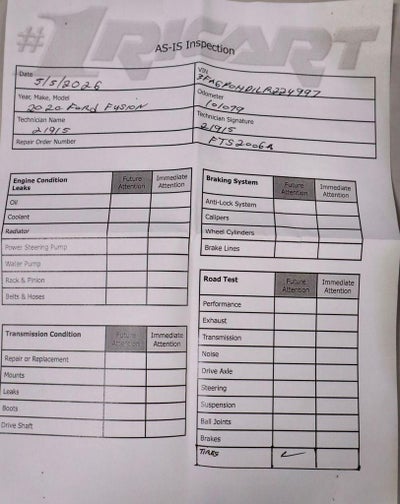 #1 RICART
AS-IS Inspection
Date 5/5/2026
VIN
Year, Make, Model 2020 Ford Fusion
Odometer 101079
Technician Name 21915
Technician Signature 21915
Repair Order Number
FTS2006A
Engine Condition Future Attention Immediate Attention
Leaks
Oil
Coolant
Radiator
Power Steering Pump
Water Pump
Rack & Pinion
Belts & Hoses
Transmission Condition Future Attention Immediate Attention
Repair or Replacement
Mounts
Leaks
Boots
Drive Shaft
Braking System Future Attention Immediate Attention
Anti-Lock System
Calipers
Wheel Cylinders
Brake Lines
Road Test Future Attention Immediate Attention
Performance
Exhaust
Transmission
Noise
Drive Axle
Steering
Suspension
Ball Joints
Brakes
TIRES ✓